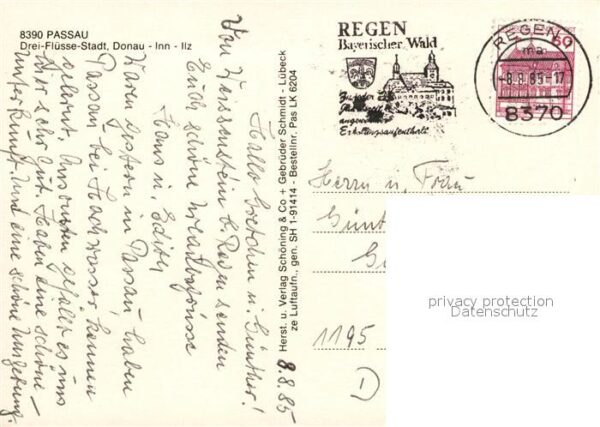 8390 PASSAU
Drei-Flüsse-Stadt, Donau - Inn - Ilz
Hallo Gretchen u. Günther!
Von Weissenstein b. Regen senden
Euch schöne Urlaubsgrüsse
Hans u. Edith
Waren gestern in Passau haben
Passau bei Hochwasser kennen
gelernt. Ansonsten gefällt es uns
hier sehr gut. Haben eine schöne
Unterkunft. Und eine schöne Umgebung.
8.8.85
Herst. u. Verlag Schöning & Co + Gebrüder Schmidt - Lübeck
ze Luftaufn., gen. SH 1-91414 - Bestellnr. Pas LK 6204
REGEN
Bayerischer Wald
angenehmen
Erholungsaufenthalt
REGEN
ma
-8.8.85-17
8370
60
Herrn u. Frau
Günt
1195
D
privacy protection
Datenschutz